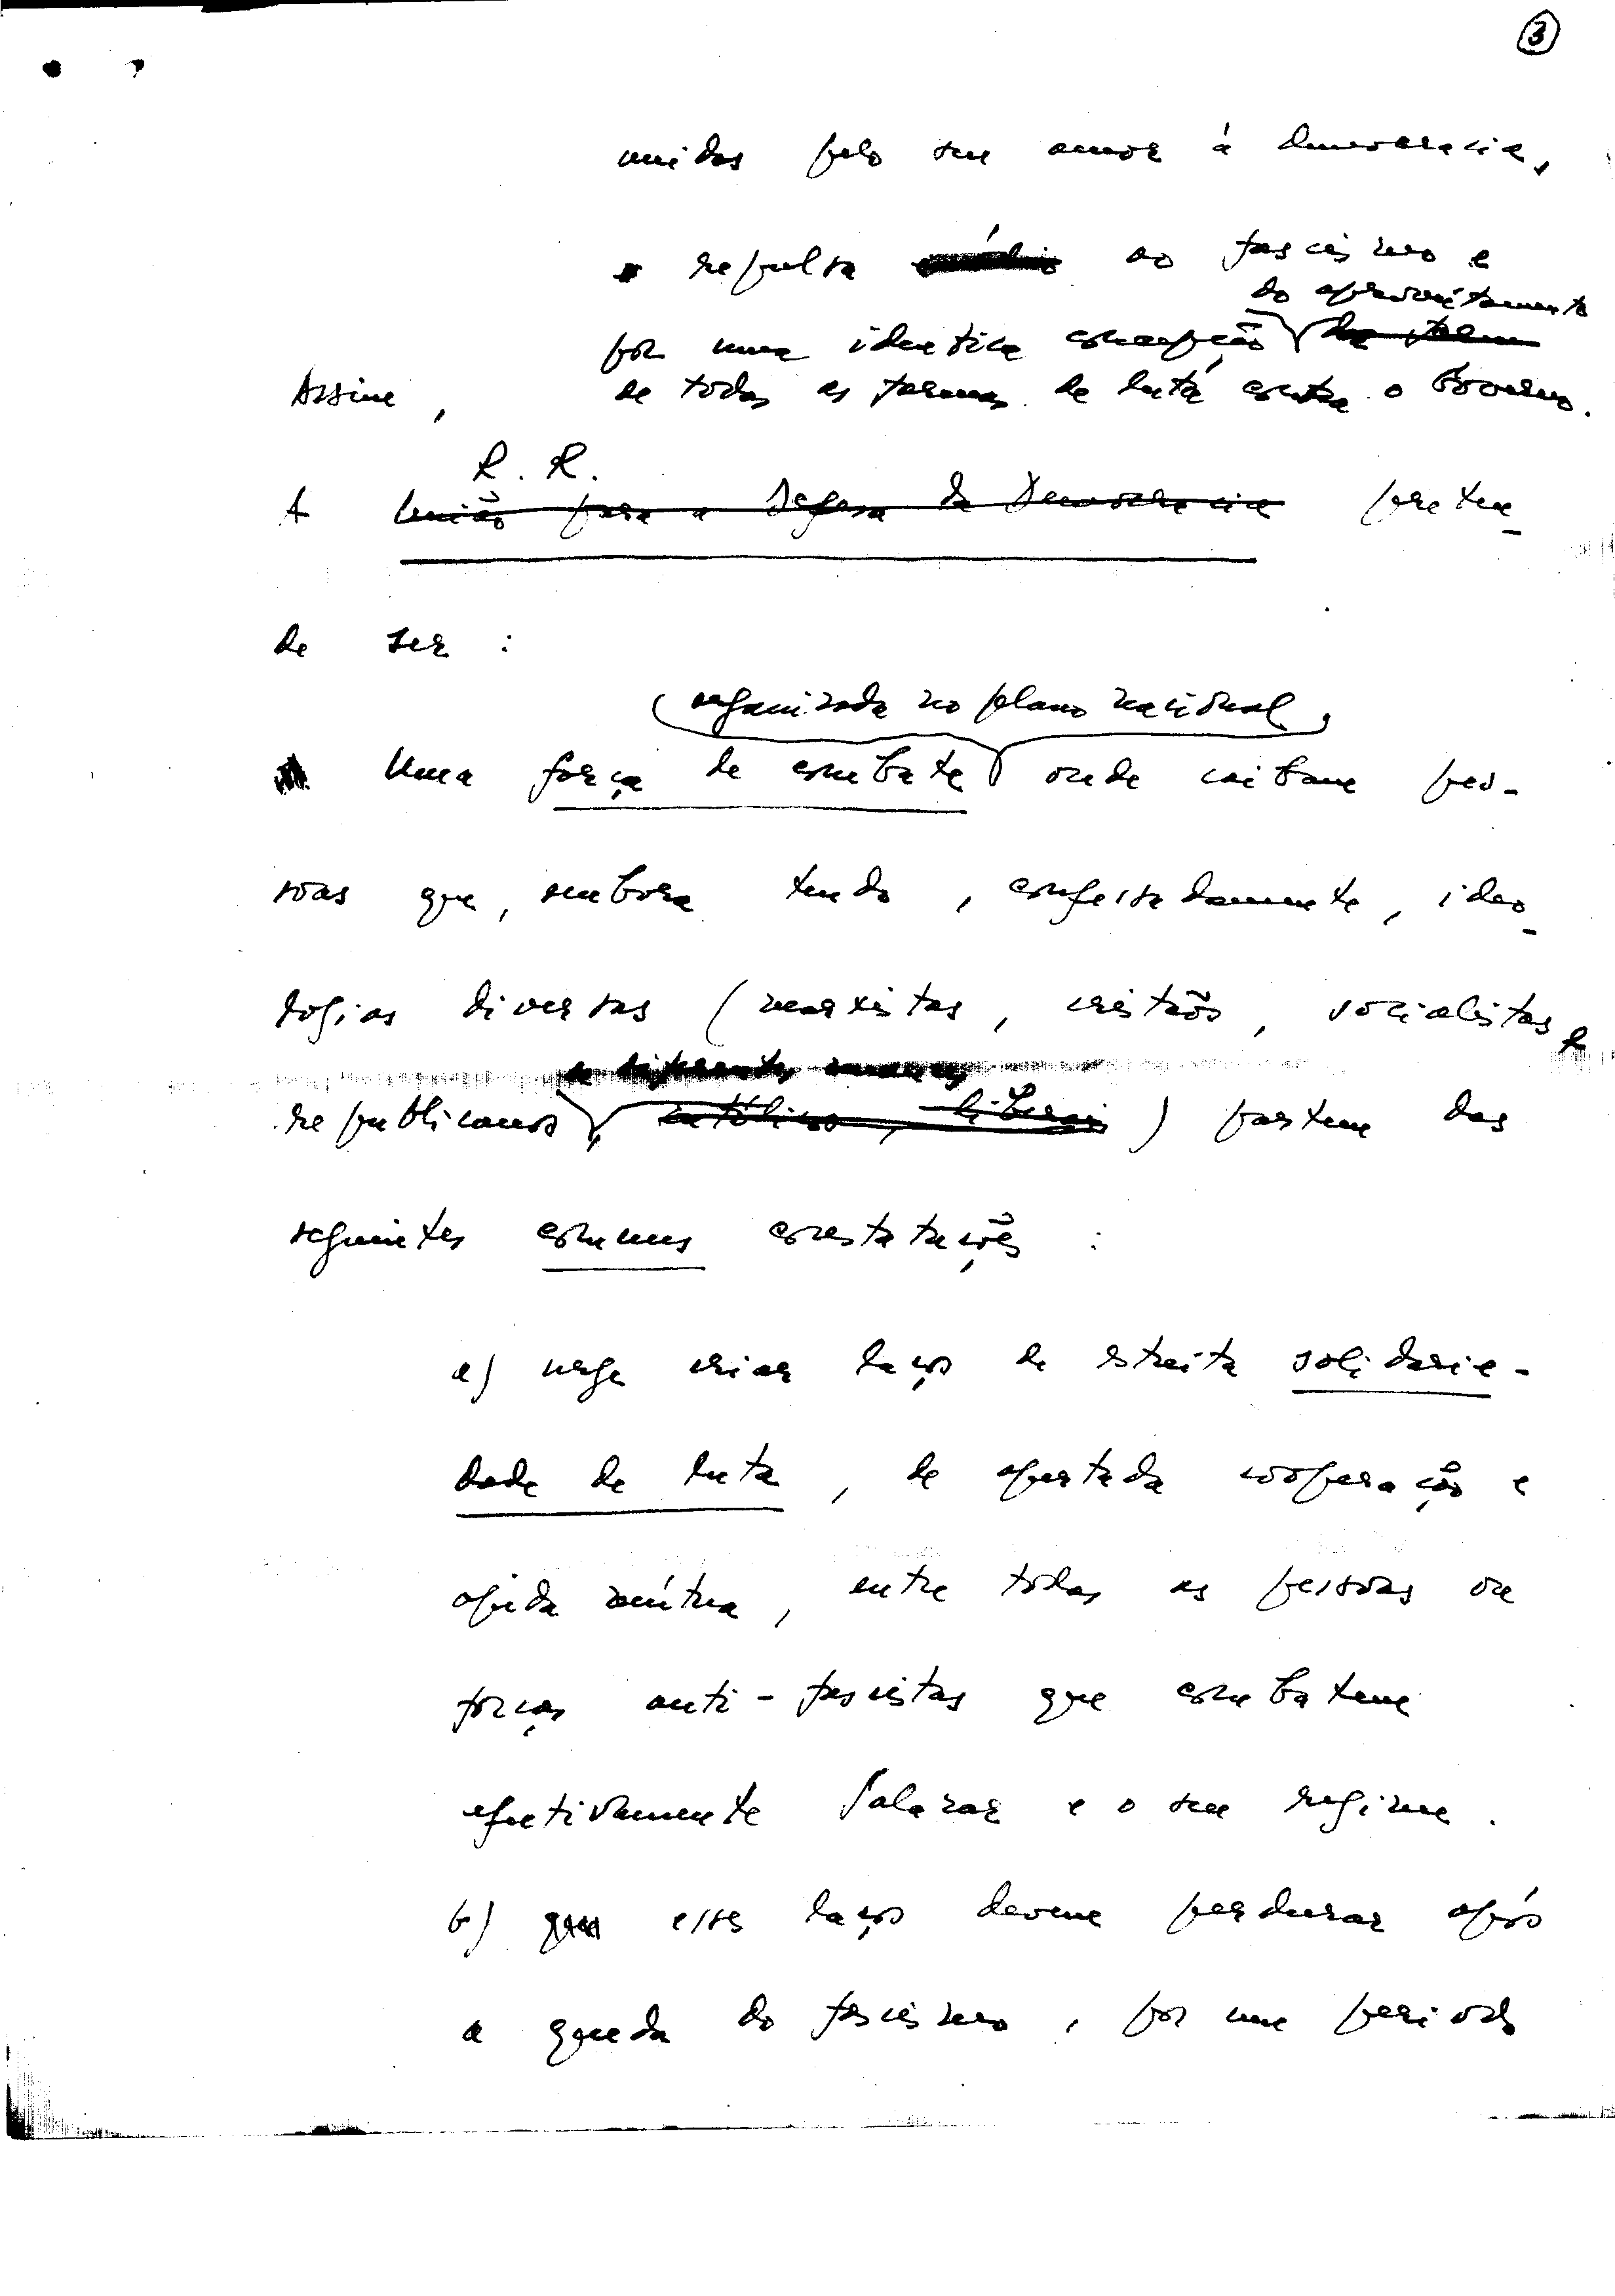 3
unidos pelo seu amor à democracia,
repulsa ao fascismo e
do aproveitamento
por uma identica concepção
Assim, de todas as formas de luta contra o Governo.
R. R.
A União para a Defesa da Democracia preten-
de ser:
(organizada no plano nacional,
Uma força de combate onde caibam pes-
soas que, embora tendo, confessadamente, ideo-
logias diversas (marxistas, cristãos, socialistas e
de diferentes
republicanos, católicos, liberais) partem das
seguintes comuns constatações:
a) urge criar laços de estreita solidarie-
dade de luta, de apertada cooperação e
ajuda mútua, entre todas as pessoas ou
forças anti-fascistas que combatem
efectivamente Salazar e o seu regime.
b) que esses laços devem perdurar após
a queda do fascismo, por um período